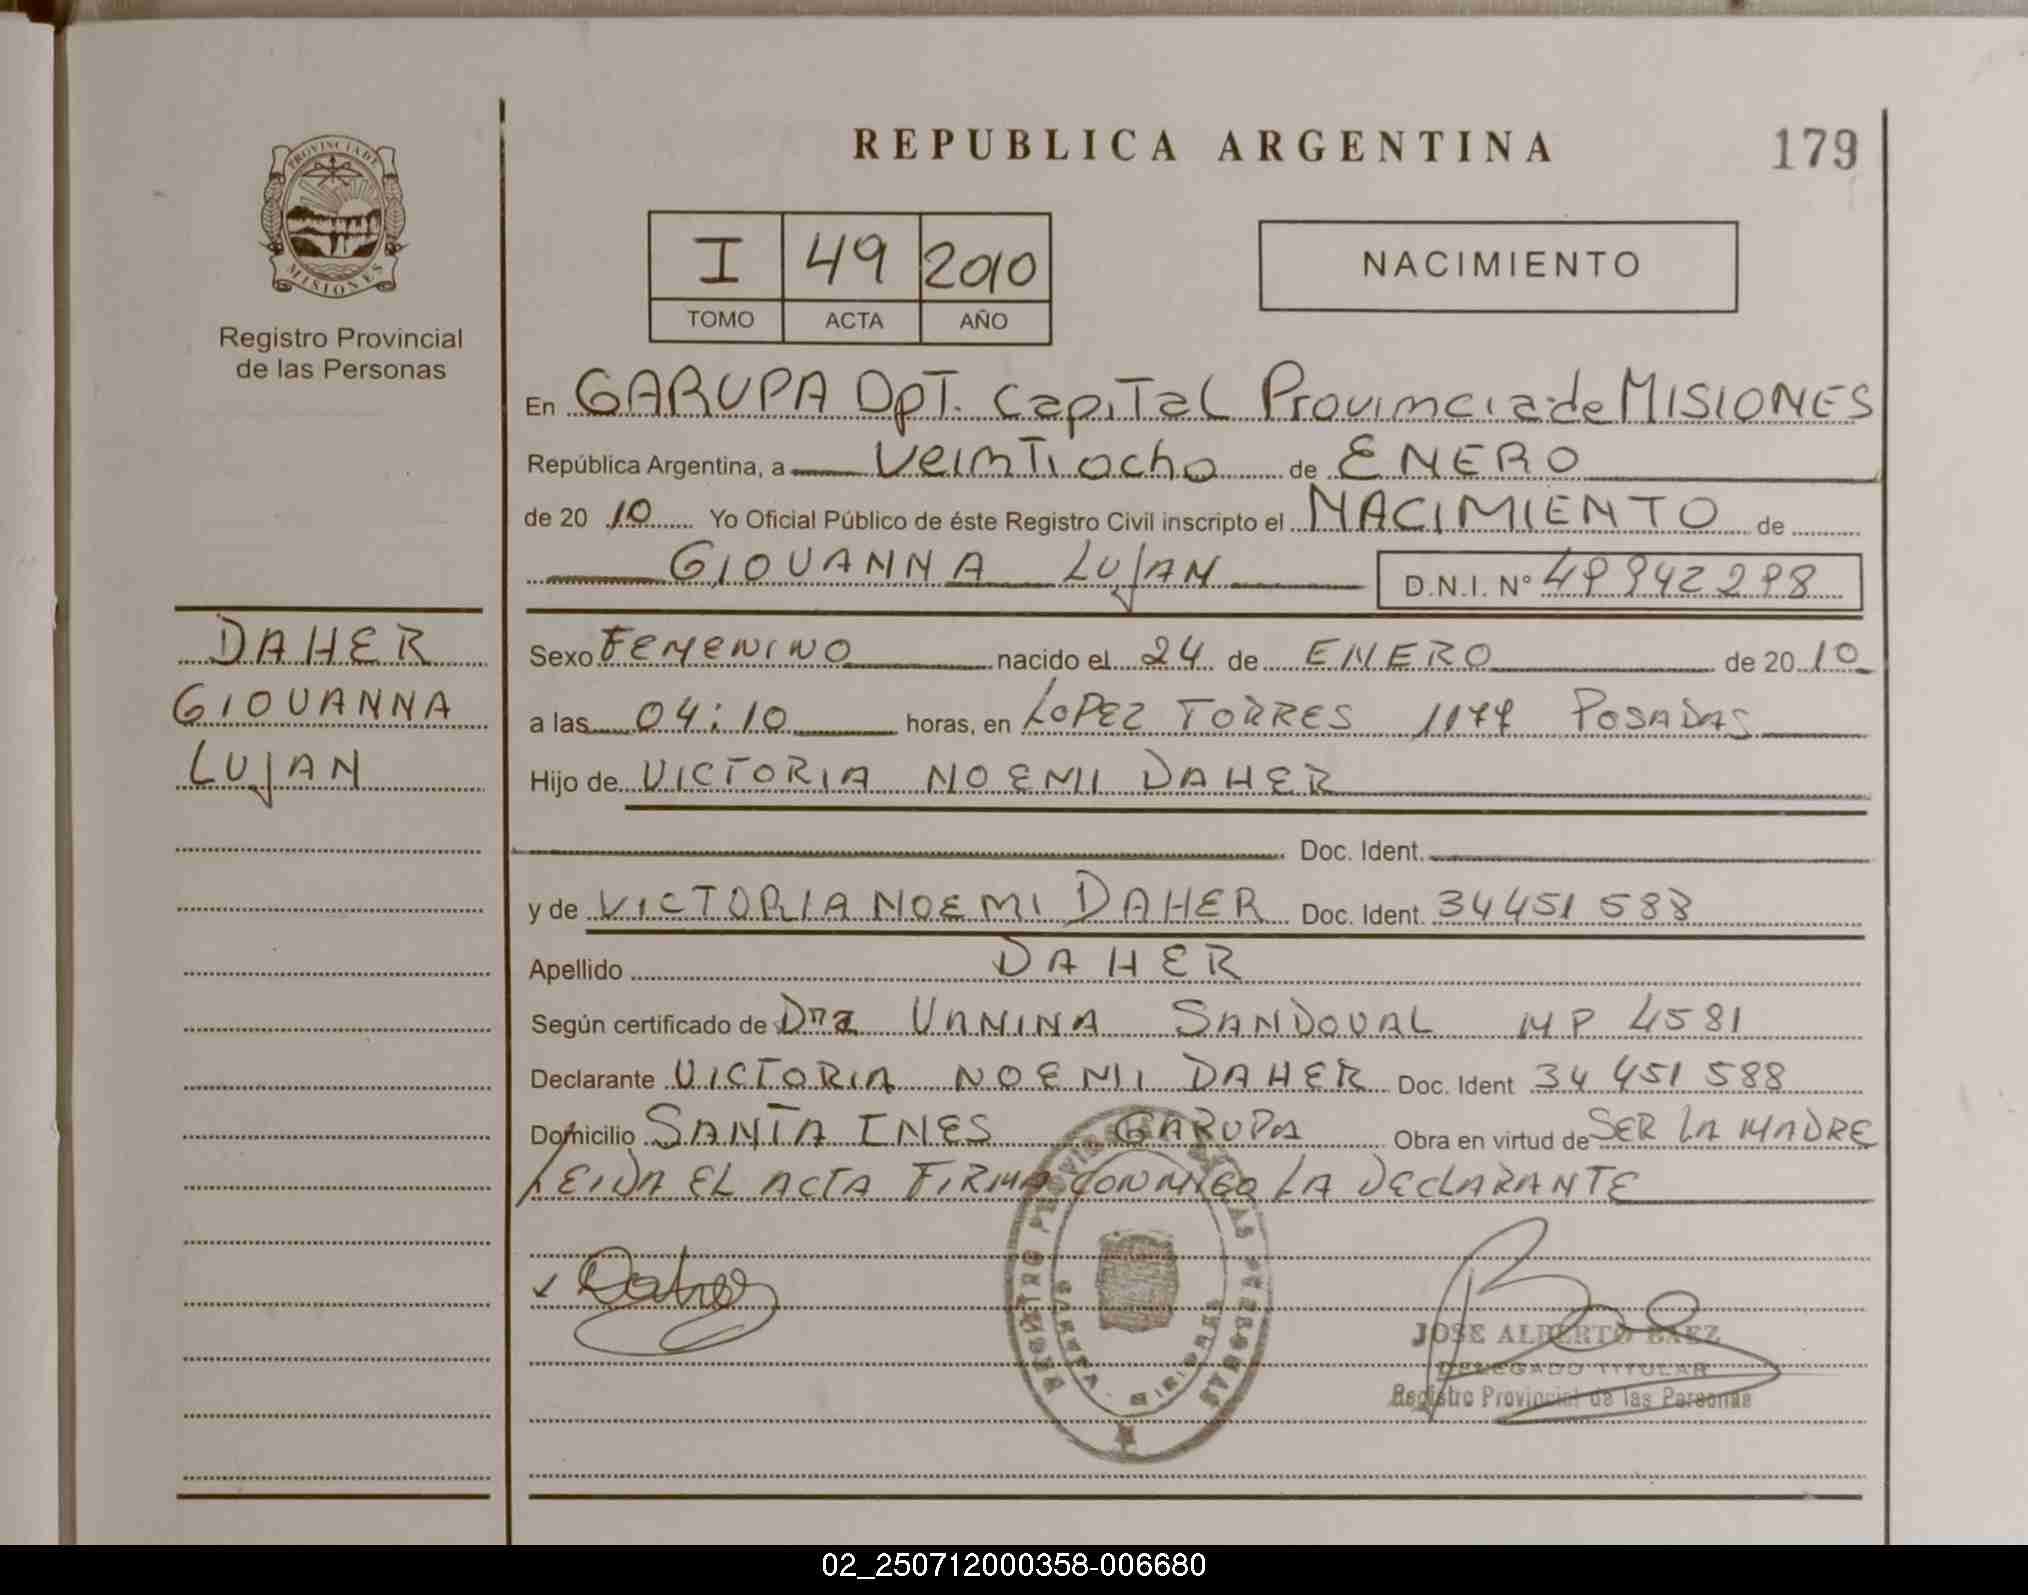 REPUBLICA ARGENTINA
179
PROVINCIA DE
MISIONES
Registro Provincial
de las Personas
I 49 2010
TOMO ACTA AÑO
NACIMIENTO
En GARUPA DpT. CapiTal Provincia de MISIONES
República Argentina, a VeinTiocho de ENERO
de 20 10 Yo Oficial Público de éste Registro Civil inscripto el NACIMIENTO de
GIOVANNA LUJAN D.N.I. Nº 49942298
DAHER
GIOVANNA
LUJAN
Sexo FEMENINO nacido el 24 de ENERO de 20 10
a las 04:10 horas, en LOPEZ TORRES 1177 POSADAS
Hijo de VICTORIA NOEMI DAHER
Doc. Ident.
y de VICTORIA NOEMI DAHER Doc. Ident. 34451588
Apellido DAHER
Según certificado de Dra VANINA SANDOVAL MP 4581
Declarante VICTORIA NOEMI DAHER Doc. Ident 34 451 588
Domicilio SANTA INES GARUPA Obra en virtud de SER LA MADRE
LEIDA EL ACTA FIRMA CONMIGO LA DECLARANTE
Daher
REGISTRO PROVINCIAL DE LAS PERSONAS
GARUPA - MISIONES
JOSE ALBERTO BAEZ
DELEGADO TITULAR
Registro Provincial de las Personas
02_250712000358-006680